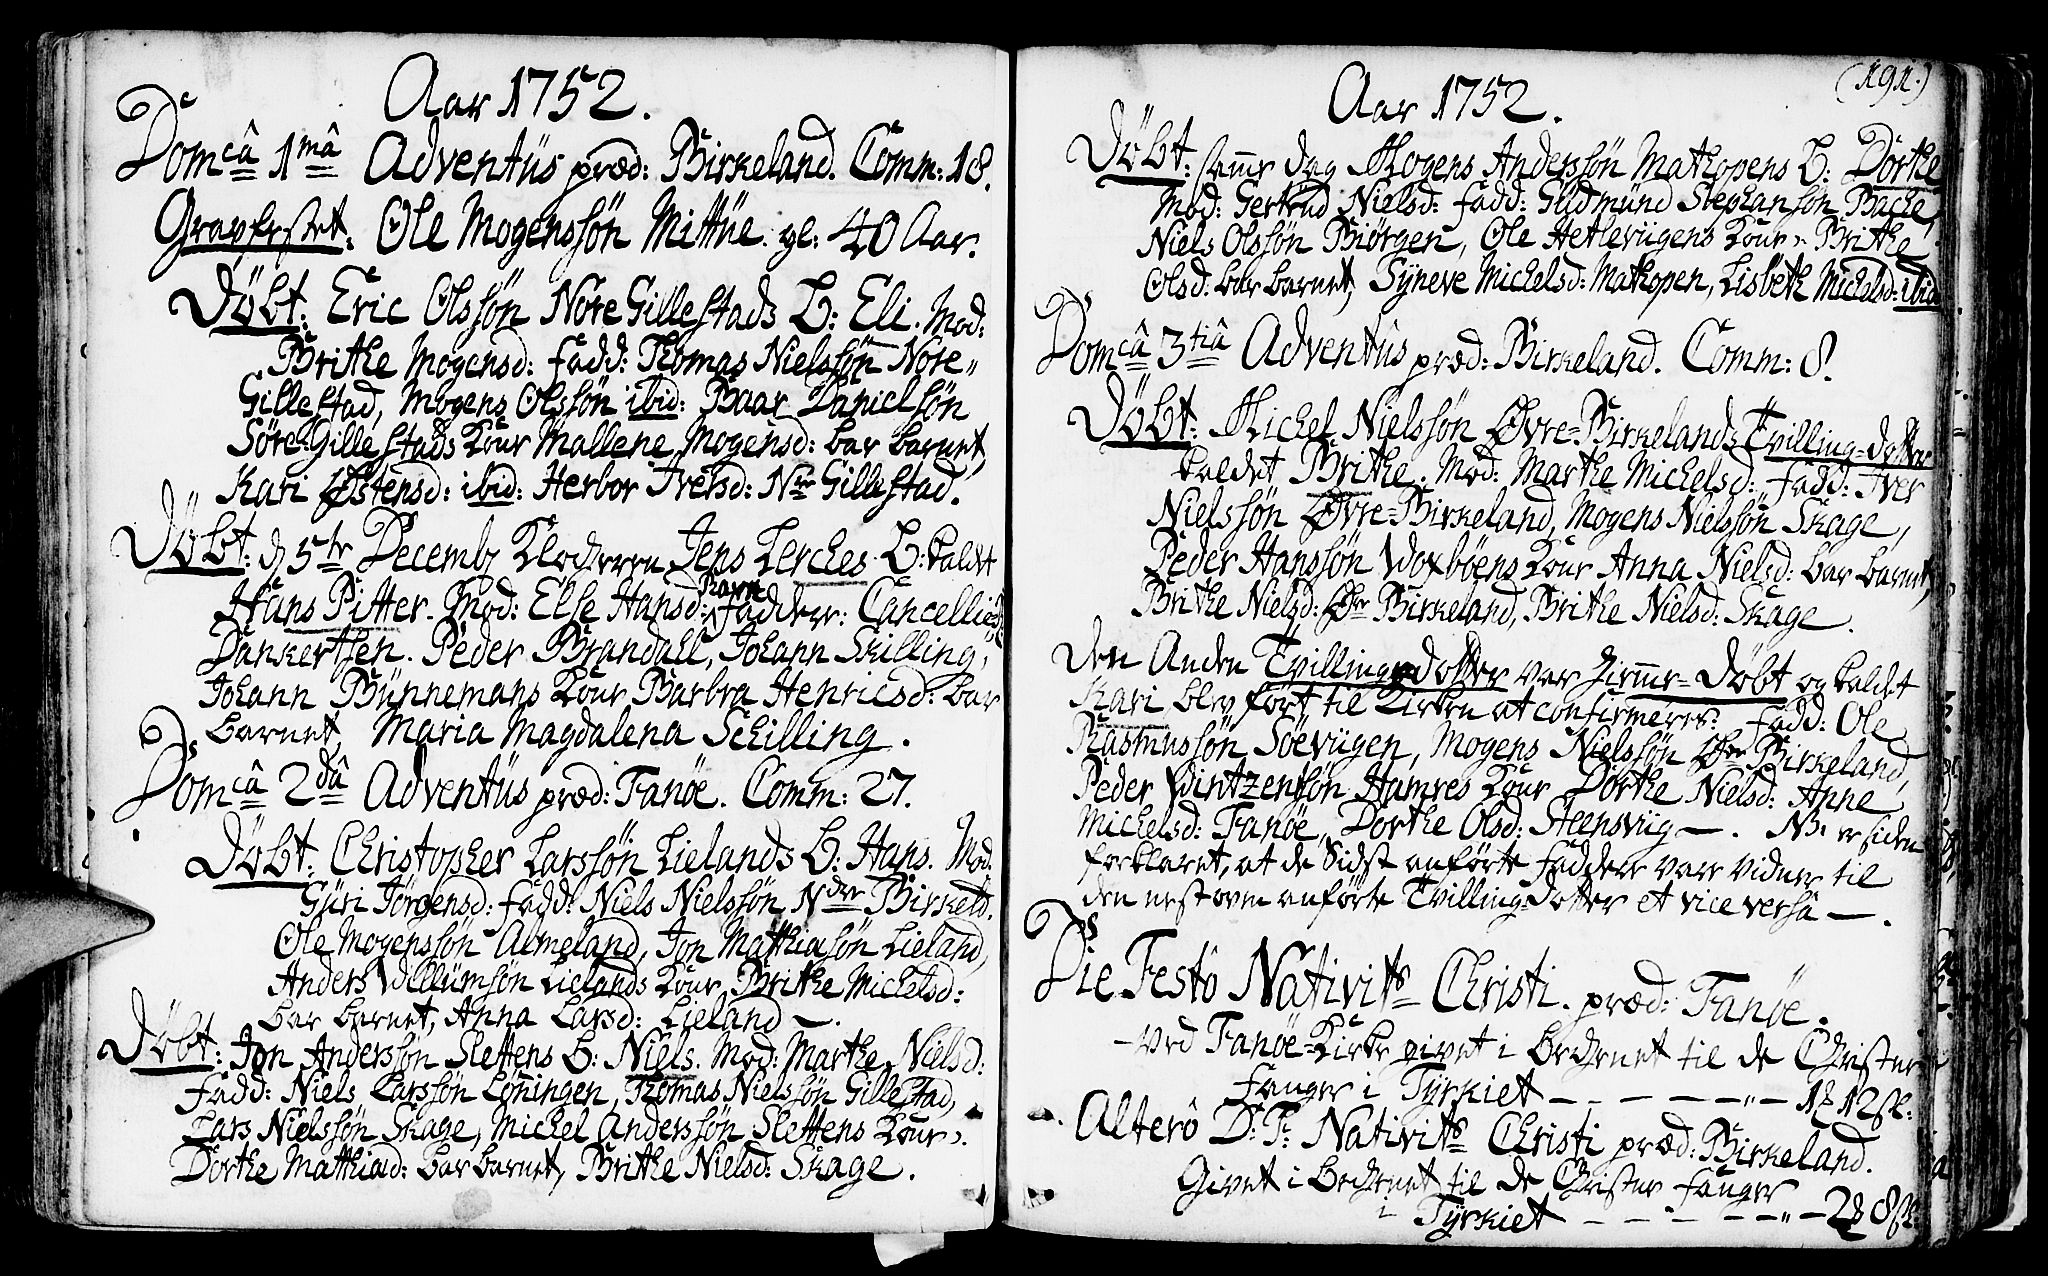 Aar 1752.
Domcâ 1mâ Adventüs præd: Birkeland. Comm: 18.
Gravfestet: Ole Mogenssön Mittüe. gl: 40 Aar.
Döbt: Eric Olssön Nore Gillestads B: Eli. Mod:
Brithe Mogensd: Fadd: Thomas Nielssön Nore-
Gillestad, Mogens Olssön ibid: Baar Danielsön
Söre-Gillestads Kour Mallene Mogensd: bar barnet,
Kari Østensd: ibid: Herbor Iversd: Nre Gillestad.
Döbt: d 5te Decemb Klocheren Jens Lerches B: kaldt
Hans Pitter. Mod: Else Hansd: Ravn Faddere: Cancellied
Dankertsen. Peder Brandall, Johann Skilling,
Johann Bünnemans Kour Barbra Henricsd: bar
barnet, Maria Magdalena Schilling.
Domcâ 2dâ Adventüs præd: Fanöe. Comm: 27.
Döbt: Christopher Larssön Lielands B: Hans. Mod:
Güri Jörgensd: Fadd: Niels Nielssön Ndre Birkeld.
Ole Mogenssön Almeland, Jon Mathiasön Lieland,
Anders Willümsön Lielands Kour, Brithe Michelsd:
bar barnet, Anna Larsd: Lieland —.
Döbt: Jon Anderssön Slettens B: Niels. Mod: Marthe Nielsd:
Fadd: Niels Larssön Löningen, Thomas Nielssön Gillestad,
Lars Nielssön Skage, Michel Anderssön Slettens Kour
Dorthe Matthiæd: bar barnet, Brithe Nielsd: Skage.
(191.)
Aar 1752.
Döbt: samme dag Mogens Anderssön Mathopens B: Dorthe
Mod: Gertrud Nielsd: Fadd: Gudmünd Stephansön Bache,
Niels Olssön Biörgen, Ole Hetlevügens Kour Brithe
Olsd: bar barnet, Syneve Michelsd: Mathopen, Lisbeth Michelsd: ibid
Domcâ 3tiâ Adventüs præd: Birkeland. Comm: 8.
Döbt: Michel Nielssön Øvre-Birkelands Tvilling-Dotter
kaldet Brithe. Mod: Marthe Michelsd: Fadd: Iver
Nielssön Øvre-Birkeland, Mogens Nielssön Skage,
Peder Hanssön Woxböens Kour Anna Nielsd: bar barnet,
Brithe Nielsd: Øre Birkeland, Brithe Nielsd: Skage.
Den Anden Tvillinge Dotter var hiemme-Döbt og kaldet
Kari blev fört til Kirken at confirmeres. Fadd: Ole
Rasmussön Söevügen, Mogens Nielssön Øre Birkeland,
Peder Wintzensön Hamres Kour Dorthe Nielsd: Anne
Michelsd: Fanöe, Dorthe Olsd: Steensvüg —. NB: er siden
forklaret, at de Sidst anförte Faddere vare vidner til
den nest oven anförte Tvilling-Dotter et vice versâ —.
Die Festô Nativits Christi. præd: Fanöe.
- Ved Fanöe-Kirke givet i beckenet til de Christne
Fanger i Tyrkiet — — — — — 1 12 sk:
Alterô D: F: Nativits Christi præd: Birkeland.
Givet i beckenet til de Christne Fanger
i Tyrkiet — — — — — 2 8 sk: